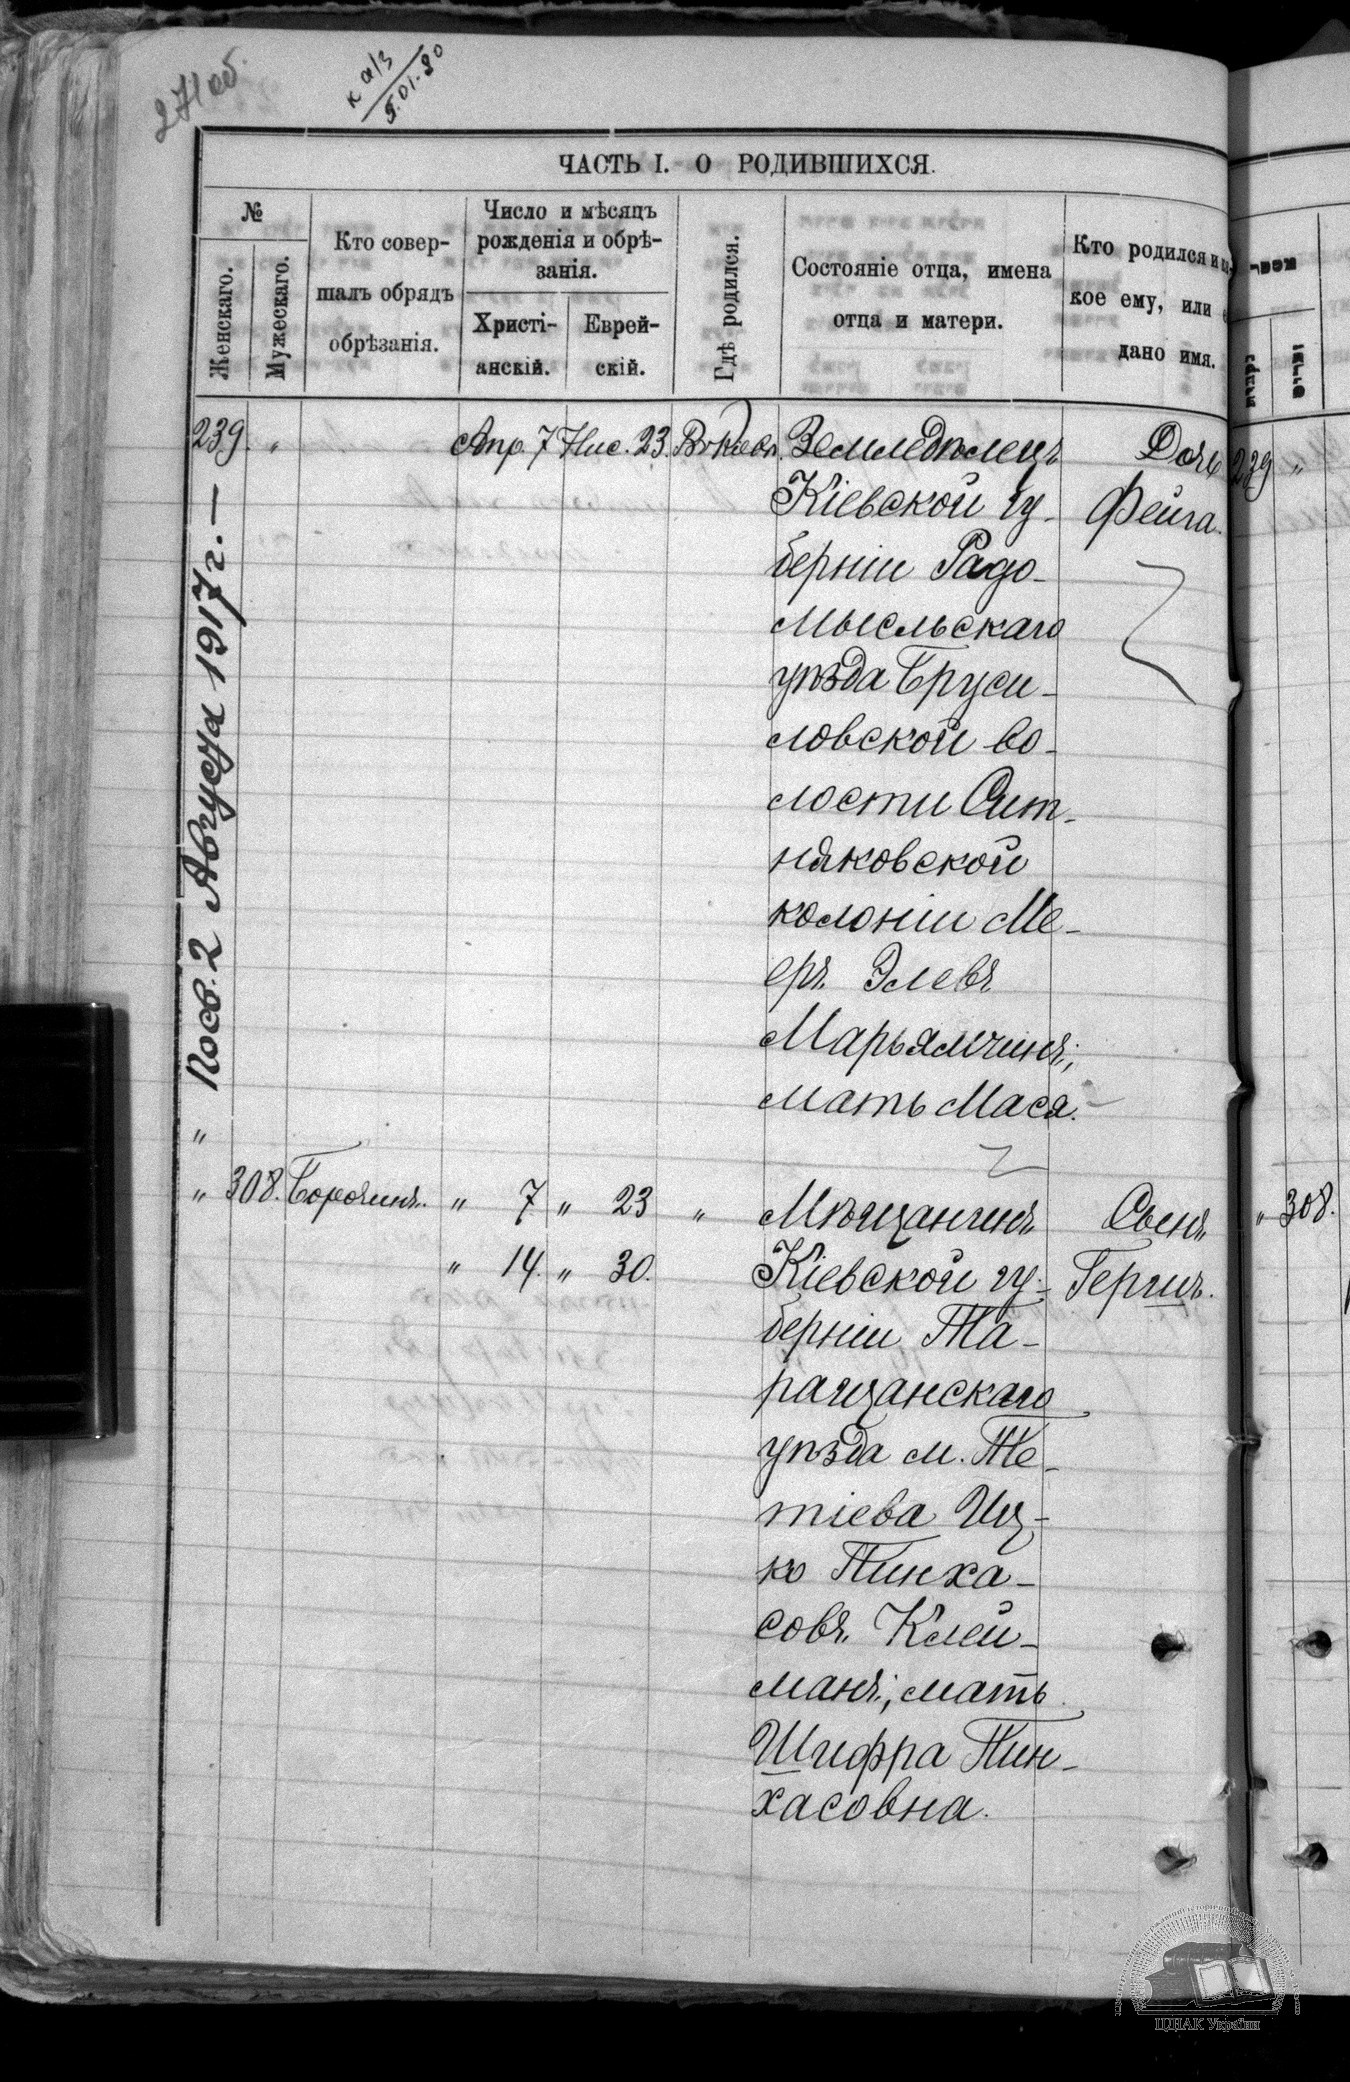 271 об.
к а/з
5.01.90
ЧАСТЬ I. О РОДИВШИХСЯ.
№
Женскаго.
Мужескаго.
Кто совер-
шалъ обрядъ
обрѣзанія.
Число и мѣсяцъ
рожденія и обрѣ-
занія.
Христі-
анскій.
Еврей-
скій.
Гдѣ родился.
Состояніе отца, имена
отца и матери.
Кто родился и ка-
кое ему, или е
дано имя.
239. " Апр. 7 Нис. 23. Въ Кіевѣ.
Земледѣлецъ
Кіевской гу-
берніи Радо-
мысльскаго
уѣзда Бруси-
ловской во-
лости Сит-
няковской
колоніи Ме-
еръ Элевъ
Марьямчинъ;
мать Мася.
Дочь
Фейга.
239 "
Посв. 2 Августа 1917 г. —
"
" 308. " 7 " 23 "
" 14. " 30.
Мѣщанинъ
Кіевской гу-
берніи Та-
ращанскаго
уѣзда м. Те-
тіева Иц-
ко Пинха-
совъ Клей-
манъ; мать
Шифра Пин-
хасовна.
Сынъ
Гершъ.
" 308.
ЦДІАК України